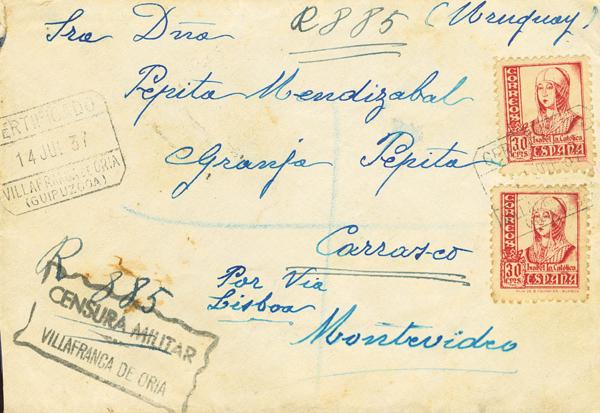 Sra Dña R885 (Uruguay)
Pepita Mendizabal
Granja Pepita
Carrasco
Por Via
Lisboa
Montevideo
CERTIFICADO
14 JUL 37
VILLAFRANCA DE ORIA
(GUIPUZCOA)
R 885
CENSURA MILITAR
VILLAFRANCA DE ORIA
CORREOS
30 CTS
Isabel la Católica
ESPAÑA
CORREOS
30 CTS
Isabel la Católica
ESPAÑA